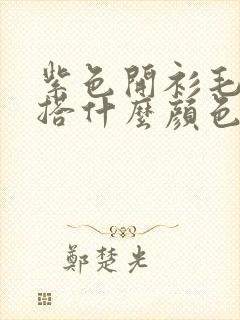 紫色開衫毛
搭什麼顏色
鄭楚光